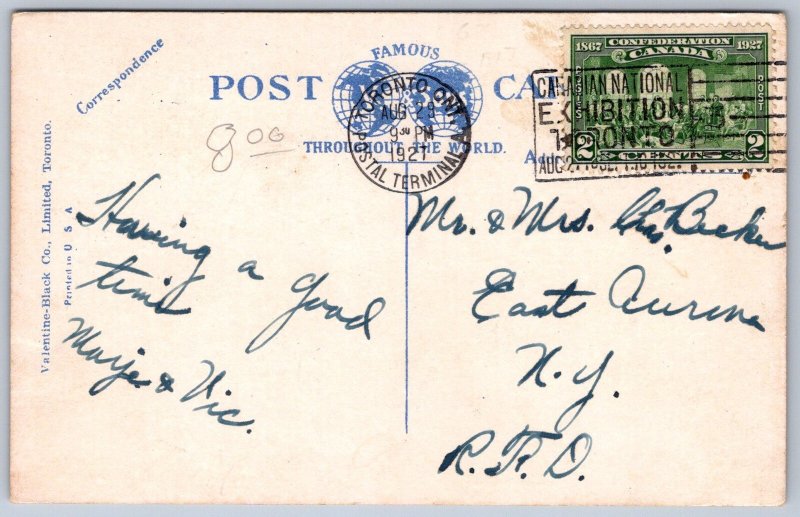 Correspondence
FAMOUS
POST CA
THROUGHOUT THE WORLD.
TORONTO, ONT.
AUG 29
9³⁰ PM
1927
POSTAL TERMINAL A
CANADIAN NATIONAL
EXHIBITION
TORONTO
1867 CONFEDERATION 1927
CANADA
POSTES POST
2 CENTS 2
8 00
Valentine-Black Co., Limited, Toronto.
Printed in U S A
Having a good
time
Marje & Vic.
Mr. & Mrs. Chas. Becker
East Aurora
N.Y.
R.F.D.